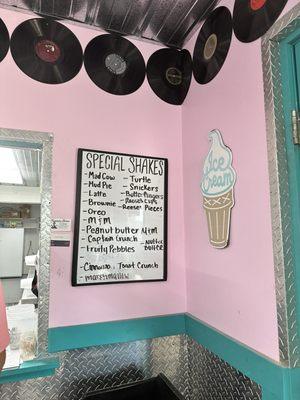 SPECIAL SHAKES
- Mad Cow
- Mud Pie
- Latte
- Brownie
- Oreo
- M&M
- Peanut butter M&M
- Captain Crunch
- Fruity Pebbles
- Turtle
- Snickers
- Butterfingers
- Reese's cups
- Reese's Pieces
- nutter butter
- Cinnamon Toast Crunch
- marshmallow
Ice
Cream